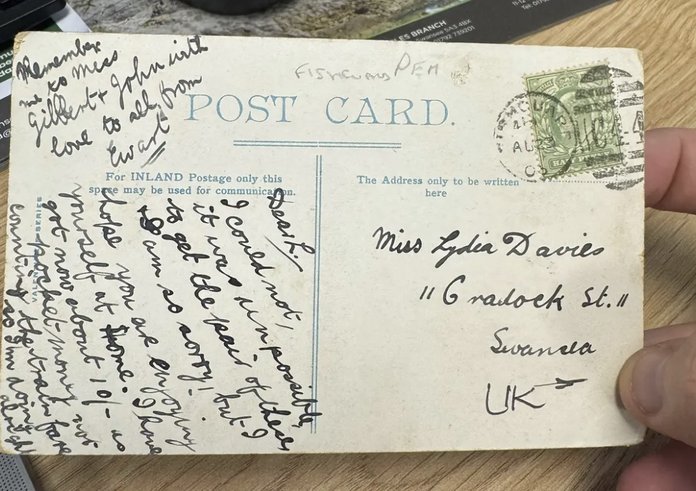 ES BRANCH
Swansea SA3 4BX
01792 739201
FISHGUARD PEM
POST CARD.
For INLAND Postage only this
space may be used for communication.
The Address only to be written
here
Remember
me to Miss
Gilbert & John with
love to all from
Ewart
Dear L.
I could not,
it was impossible,
to get the pair of these
I am so sorry, but I
hope you are enjoying
yourself at home. I have
got now about 10/- as
pocket-money not
counting the train fare
so I'm doing
alright
Miss Lydia Davies
11 Cradock St.
Swansea
UK